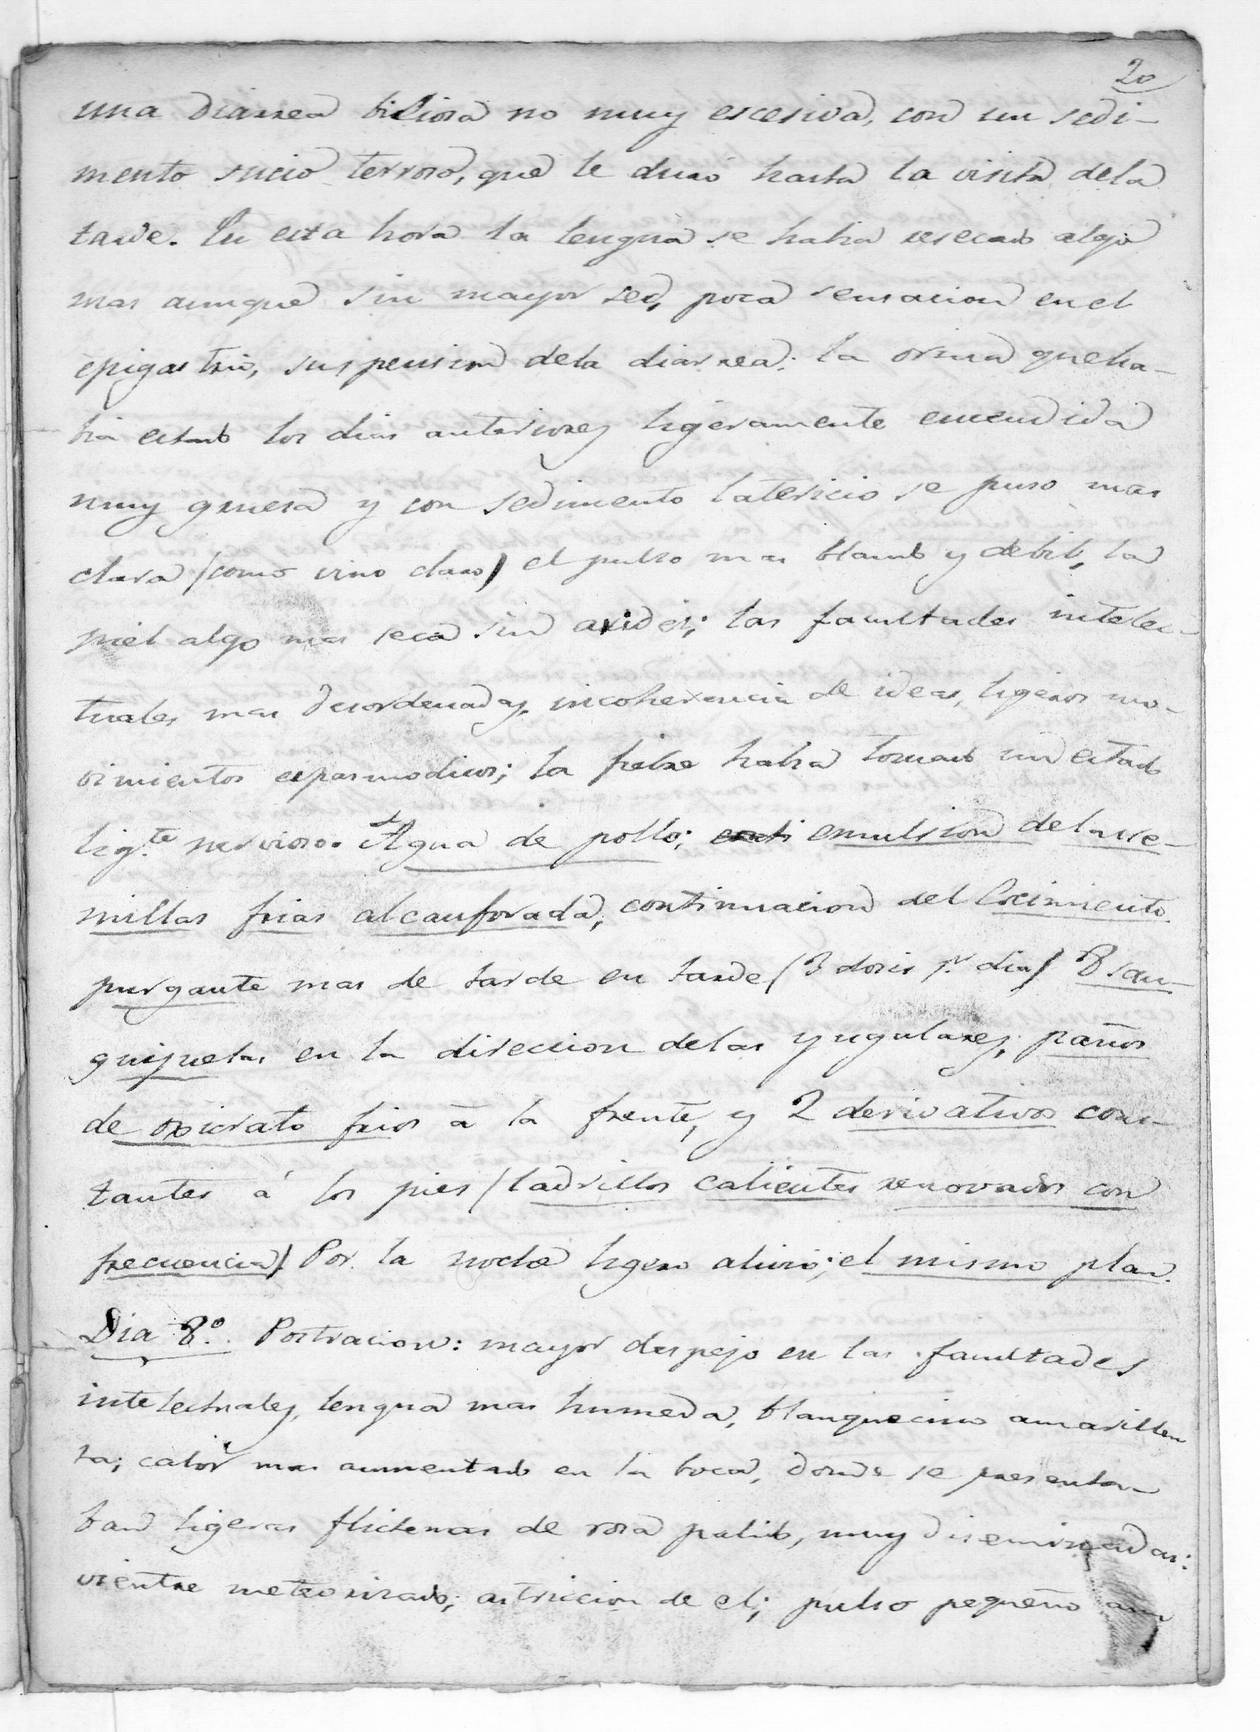 20
una diarrea biliosa no muy escesiva, con un sedi-
mento sucio terroso, que le duró hasta la visita dela
tarde. En esta hora la lengua se habia resecado algo
mas aunque sin mayor sed, poca sensacion en el
epigastrio, suspension dela diarrea: la orina queha-
bia estado los dias anteriores ligeramente encendida
muy gruesa y con sedimento latericio se puso mas
clara (como vino claro) el pulso mas blando y debil, la
piel algo mas seca sin aridez; las facultades intelec-
tuales mas desordenadas, incoherencia de ideas, ligeros mo-
vimientos espasmodicos; la fiebre habia tomado un estado
lig.te nervioso. Agua de pollo; emulsion delas se-
millas frias alcanforada, continuacion del Cocimiento
purgante mas de tarde en tarde (3 dosis pr. dia) 8 san-
guijuelas en la direccion delas yugulares, paños
de oxicrato frios á la frente, y 2 derivativos cons-
tantes á los pies (ladrillos calientes renovados con
frecuencia) Por la noche ligero alivio; el mismo plan.
Dia 8.º. Postracion: mayor despejo en las facultades
intelectuales, lengua mas humeda, blanquecino amarillen
ta; calor mas aumentado en la boca, donde se presenta-
ban ligeras flictenas de rosa palido, muy diseminadas:
vientre meteorizado; astriccion de el; pulso pequeño aun